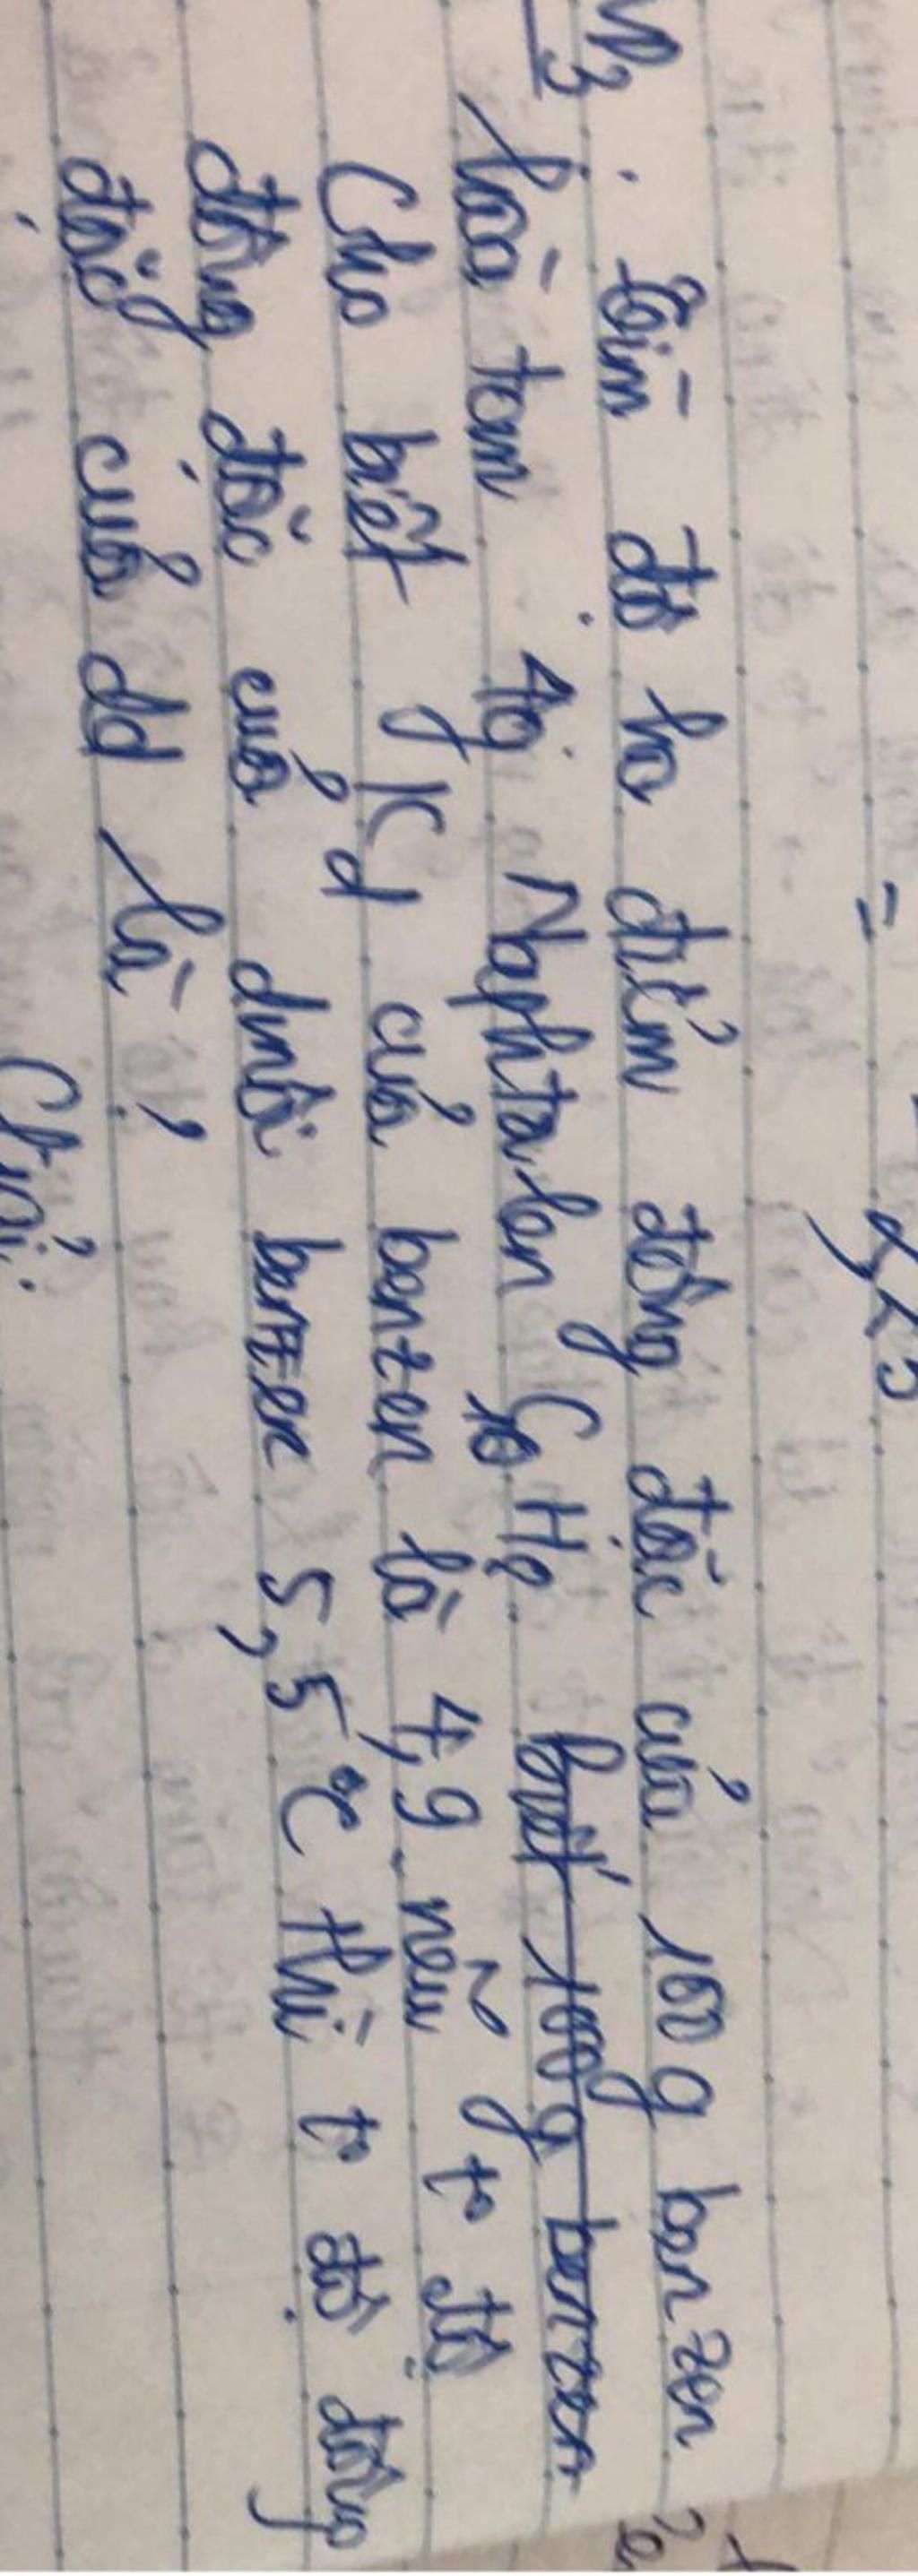 = 4,25
VD3: Tìm độ hạ điểm đông đặc của 100g benzen
hoà tan 4g Naphtalen C10H8 biết 100g benzen
Cho biết Kđ của benzen là 4,9. nếu t° độ
đông đặc của dmôi benzen 5,5°C thì t° độ đông
đặc của dd là?
Giải: